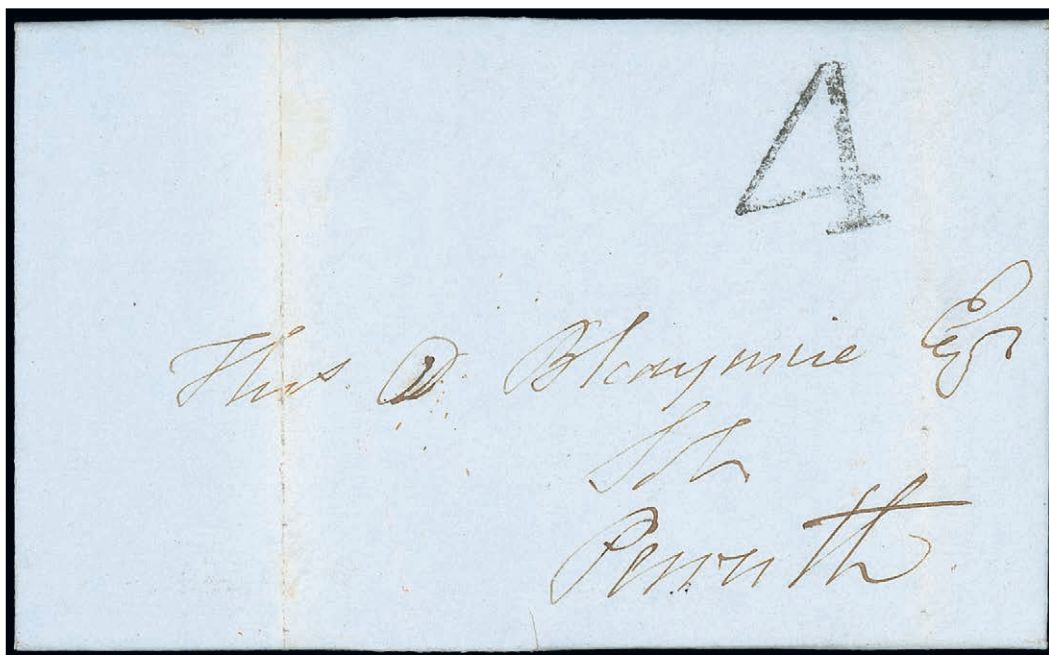 4
Thos. D. Bleaymire Esqr
Solr
Penrith